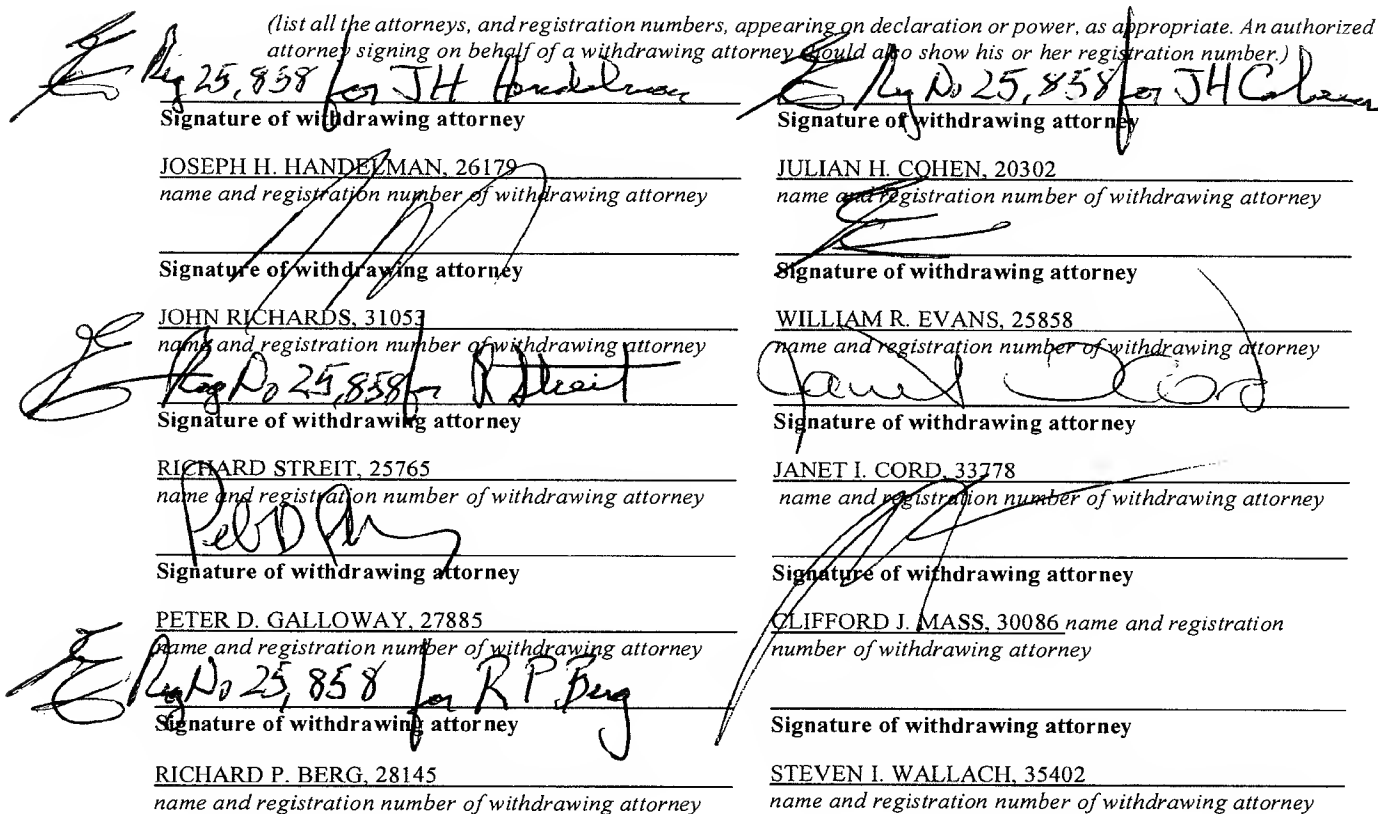 (list all the attorneys, and registration numbers, appearing on declaration or power, as appropriate. An authorized
attorney signing on behalf of a withdrawing attorney should also show his or her registration number.)
Reg 25,858 for JH Handelman
Signature of withdrawing attorney
JOSEPH H. HANDELMAN, 26179
name and registration number of withdrawing attorney
Reg No 25,858 for JH Cohen
Signature of withdrawing attorney
JULIAN H. COHEN, 20302
name and registration number of withdrawing attorney
Signature of withdrawing attorney
JOHN RICHARDS, 31053
name and registration number of withdrawing attorney
Signature of withdrawing attorney
WILLIAM R. EVANS, 25858
name and registration number of withdrawing attorney
Reg No 25,858 for R Streit
Signature of withdrawing attorney
RICHARD STREIT, 25765
name and registration number of withdrawing attorney
Janet I Cord
Signature of withdrawing attorney
JANET I. CORD, 33778
name and registration number of withdrawing attorney
Signature of withdrawing attorney
PETER D. GALLOWAY, 27885
name and registration number of withdrawing attorney
Signature of withdrawing attorney
CLIFFORD J. MASS, 30086 name and registration
number of withdrawing attorney
Reg No 25,858 for R P. Berg
Signature of withdrawing attorney
RICHARD P. BERG, 28145
name and registration number of withdrawing attorney
Signature of withdrawing attorney
STEVEN I. WALLACH, 35402
name and registration number of withdrawing attorney